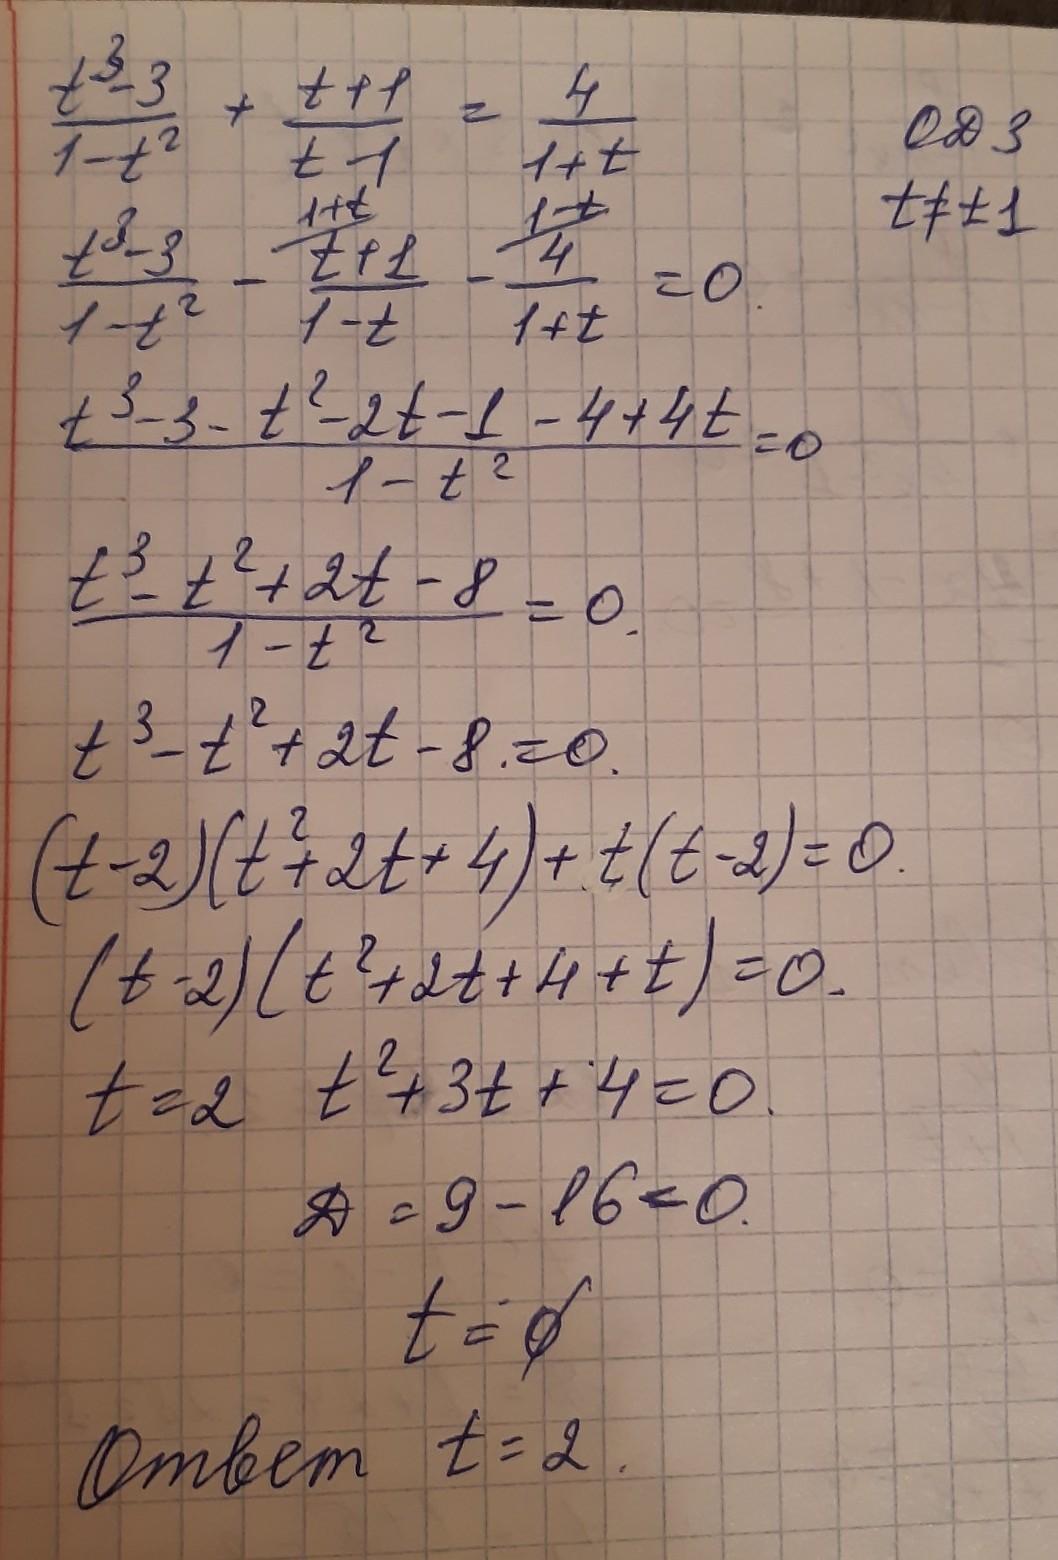 t³-3/1-t² + t+1/t-1 = 4/1+t ОДЗ
t≠±1
t³-3/1-t² - 1+t/ t+1/1-t - 1-t/ 4/1+t =0.
t³-3-t²-2t-1-4+4t/1-t² =0
t³-t²+2t-8/1-t² =0.
t³-t²+2t-8.=0.
(t-2)(t²+2t+4)+t(t-2)=0.
(t-2)(t²+2t+4+t)=0.
t=2 t²+3t+4=0.
Д=9-16<0.
t=∅
Ответ t=2.